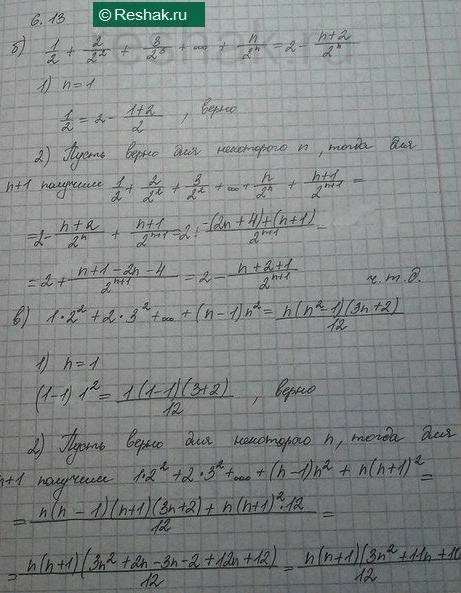 © Reshak.ru
6.13
б) 1/2 + 2/2² + 3/2³ + ∞ + n/2ⁿ = 2 - (n+2)/2ⁿ
1) n=1
1/2 = 2 - (1+2)/2 , верно
2) Пусть верно для некоторого n, тогда для
n+1 получим 1/2 + 2/2² + 3/2² + ∞ + n/2ⁿ + (n+1)/2ⁿ⁺¹ =
= 2 - (n+2)/2ⁿ + (n+1)/2ⁿ⁺¹ = 2 + (-(2n+4)+(n+1))/2ⁿ⁺¹ =
= 2 + (n+1-2n-4)/2ⁿ⁺¹ = 2 - (n+2+1)/2ⁿ⁺¹ ч.т.д.
в) 1·2² + 2·3² + ∞ + (n-1)n² = n(n²-1)(3n+2)/12
1) n=1
(1-1)1² = 1(1-1)(3+2)/12 , верно
2) Пусть верно для некоторого n, тогда для
n+1 получим 1·2² + 2·3² + ∞ + (n-1)n² + n(n+1)² =
= (n(n-1)(n+1)(3n+2) + n(n+1)²·12)/12 =
= n(n+1)(3n²+2n-3n-2+12n+12)/12 = n(n+1)(3n²+11n+10/12